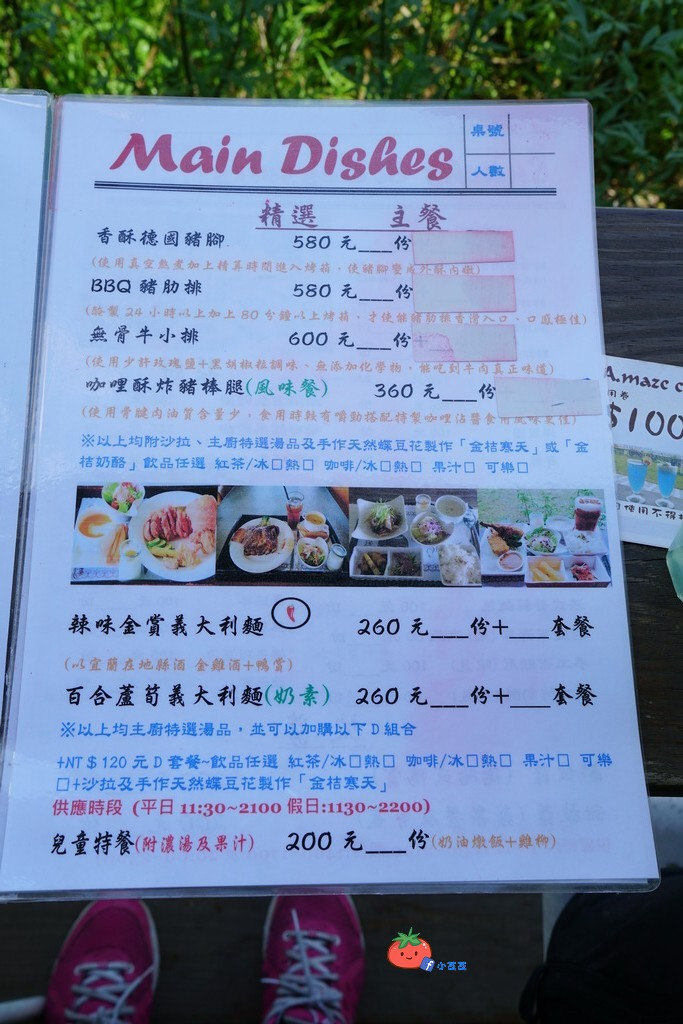 Main Dishes
桌號
人數
精選 主餐
香酥德國豬腳 580 元___份
(使用真空熟煮加上精算時間進入烤箱,使豬腳豐厚外酥肉嫩)
BBQ 豬肋排 580 元___份
(醃製 24 小時以上加上 80 分鐘以上烤箱、才使能豬肋排香滑入口、口感極佳)
無骨牛小排 600 元___份
(使用少許玫瑰鹽+黑胡椒粒調味、無添加化學物,能吃到牛肉真正味道)
咖哩酥炸豬棒腿(風味餐) 360 元___份
(使用骨腱肉油質含量少,食用時較有嚼勁搭配特製咖哩沾醬食用風味更佳)
※以上均附沙拉、主廚特選湯品及手作天然蝶豆花製作「金桔寒天」或「金
桔奶酪」飲品任選 紅茶/冰□熱□ 咖啡/冰□熱□ 果汁□ 可樂□
辣味金賞義大利麵 260 元___份+___套餐
(以宜蘭在地縣酒 金雞酒+鴨賞)
百合蘆筍義大利麵(奶素) 260 元___份+___套餐
※以上均主廚特選湯品,並可以加購以下 D 組合
+NT$120 元 D 套餐~飲品任選 紅茶/冰□熱□ 咖啡/冰□熱□ 果汁□ 可樂
□+沙拉及手作天然蝶豆花製作「金桔寒天」
供應時段 (平日 11:30~2100 假日:1130~2200)
兒童特餐(附濃湯及果汁) 200 元___份(奶油燉飯+雞柳)
A.maze
$100
使用不得
小荳荳